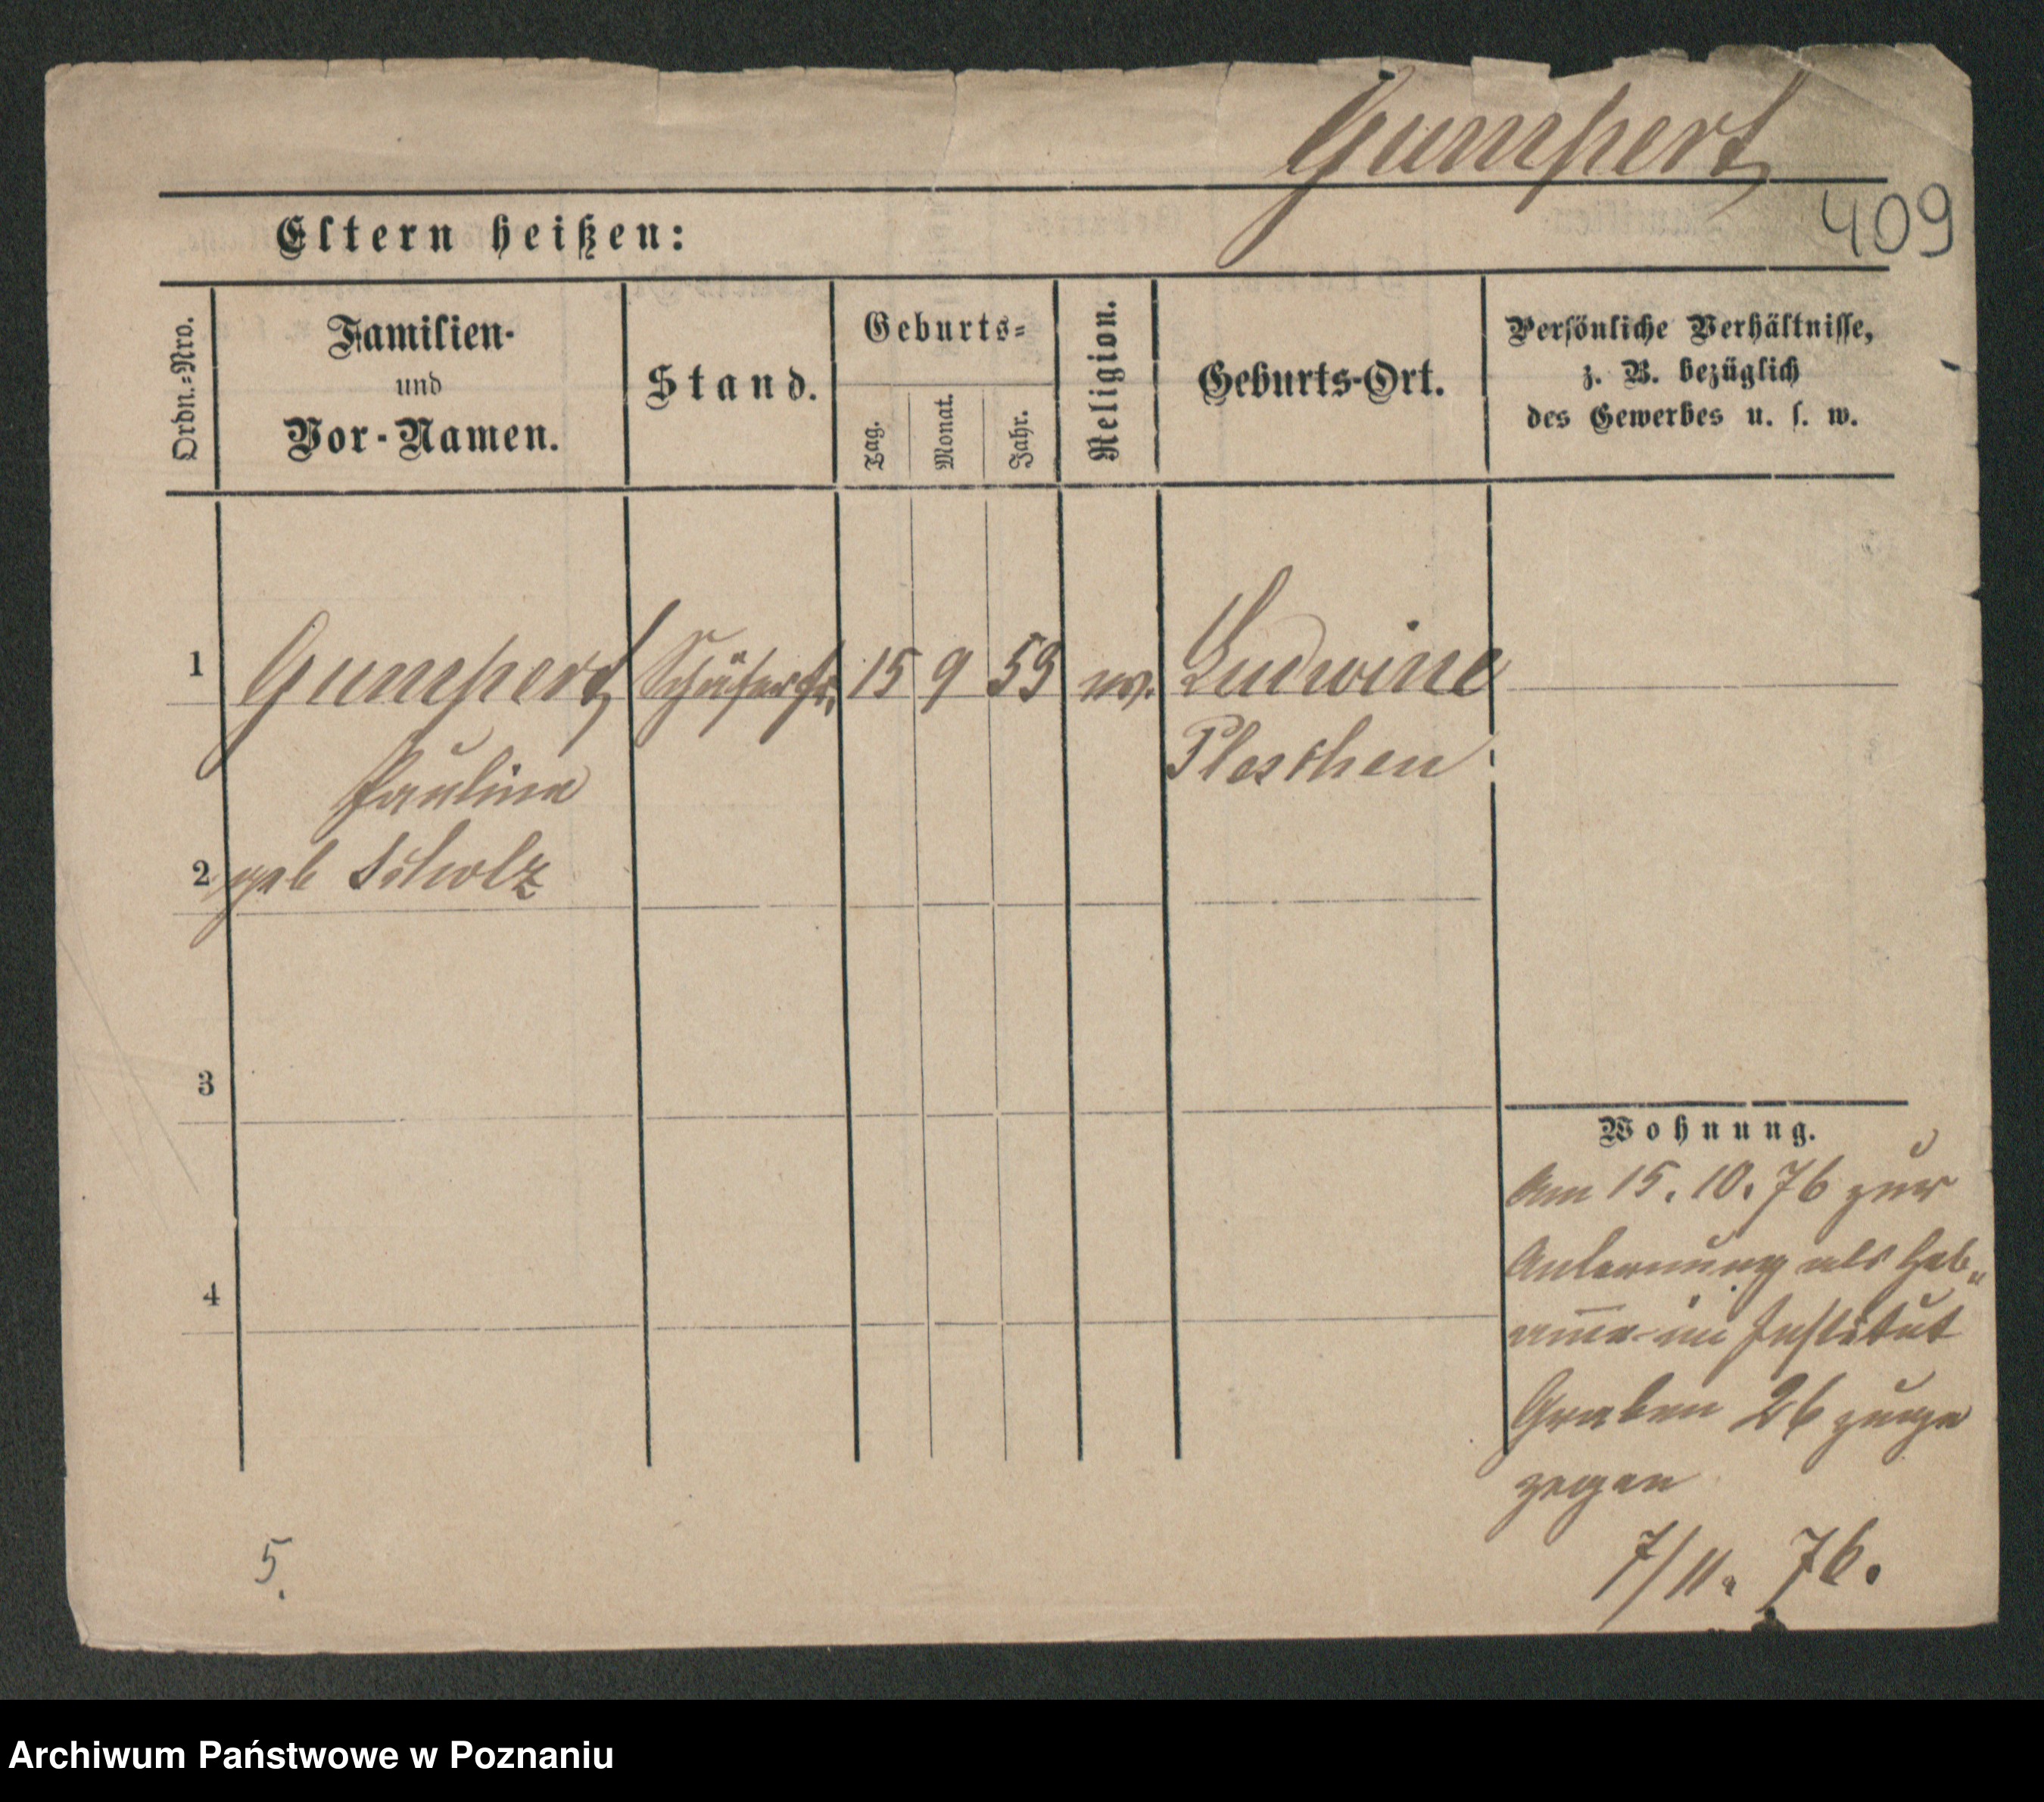 Gumpert
409
Eltern heißen:
Ordn.-Nro.
Familien-
und
Vor-Namen.
Stand.
Geburts-
Tag.
Monat.
Jahr.
Religion.
Geburts-Ort.
Persönliche Verhältnisse,
z. B. bezüglich
des Gewerbes u. s. w.
1 Gumpert Schäferfr. 15 9 59 ev. Ludwine
Pauline Pleschen
2 geb Scholz
3
4
Wohnung.
Am 15. 10. 76 zur
Anlernung als Heb„
amme im Institut
Graben 26 zuge
zogen
7/11. 76.
5.
Archiwum Państwowe w Poznaniu